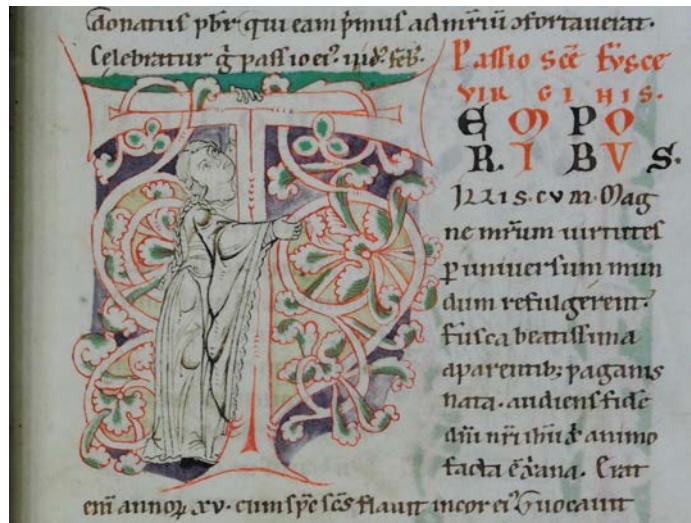 donatus pbr qui eam pͥmus ad mrͥiū ↄfortauerat.
Celebratur g̾ passio ei᷒ iiid᷒ feb᷒.
Passio scē fusce
VIRGINIS.
T EMPO
R. I BVS.
IRRIS. CVM. Mag
ne mrͥum uirtutes
p̱ uniuersum mun
dum refulgerent.
fusca beatissima
a parentib; paganis
nata. audiens fidē
dn̄i nr̄i ih̄u animo
facta ē xͥana. Erat
eni᷒ annoꝝ xv. cum sp̄c sc̄s flauit in cor ei᷒ Et uocauit